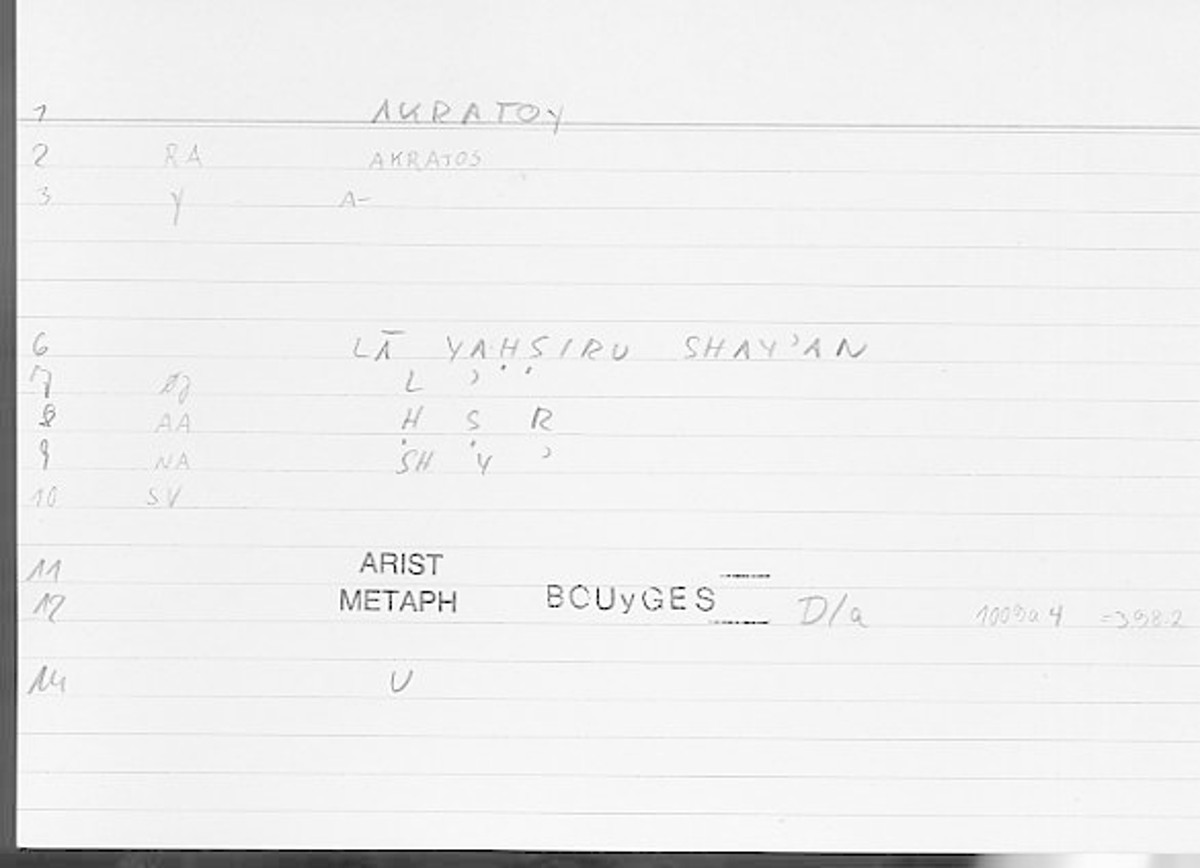 1 AKRATOY
2 RA AKRATOS
3 Y A-
6 LĀ YAḤṢIRU SHAY'AN
7 L '
8 AA Ḥ Ṣ R
9 NA SH Y '
10 SV
11 ARIST
12 METAPH BOUyGES D/a 1009a4 =398.2
14 U